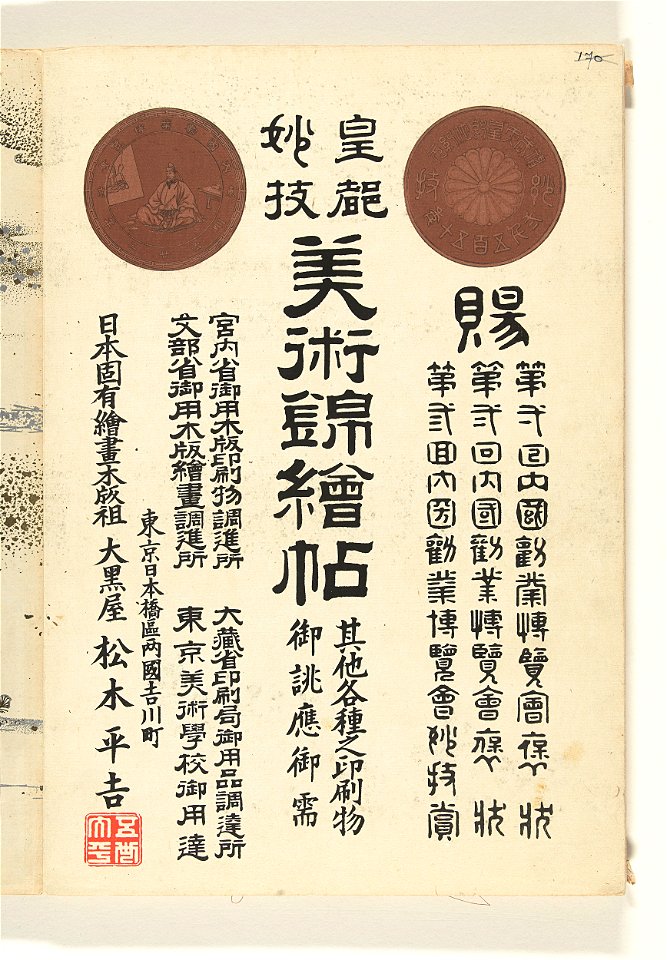 170
賜
第弐回内國勧業博覧會褒狀
第弐回内国勧業博覧會褒狀
第弐回内国勧業博覧會妙技賞
皇都
妙技
美術錦繪帖
其他各種之印刷物
御誂應御需
宮内省御用木版印刷物調進所
文部省御用木版繪畫調進所
大藏省印刷局御用品調達所
東京美術學校御用達
東京日本橋區両國吉川町
日本固有繪畫木版祖 大黒屋 松木平吉